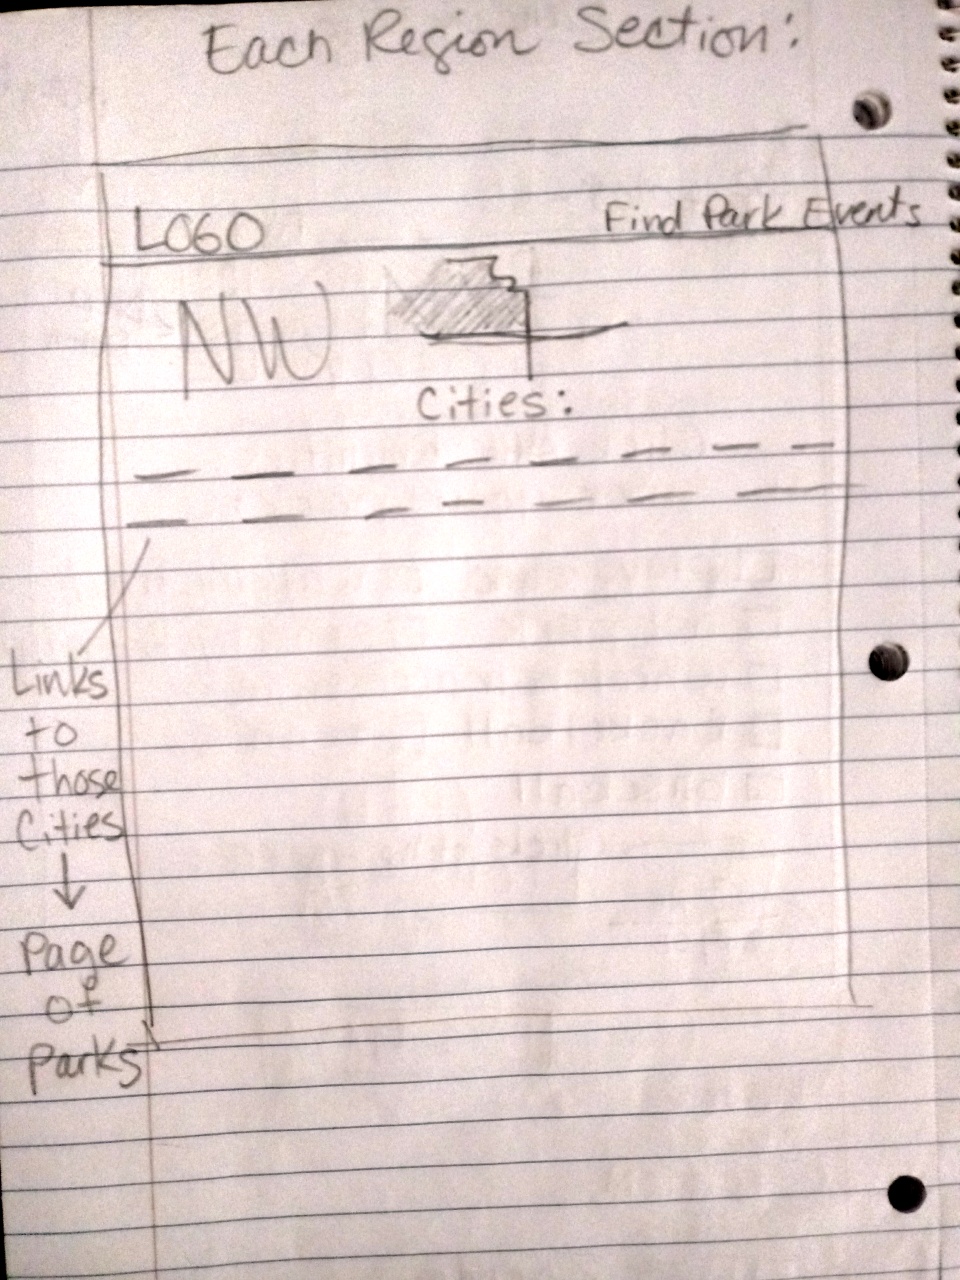 Each Region Section:
LOGO
Find Park Events
NW
Cities:
Links
to
those
Cities
↓
Page
of
Parks